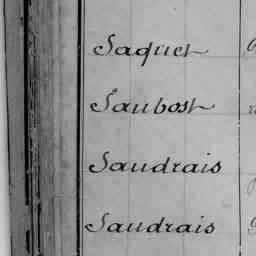 Saquet
Saubost
Saudrais
Saudrais